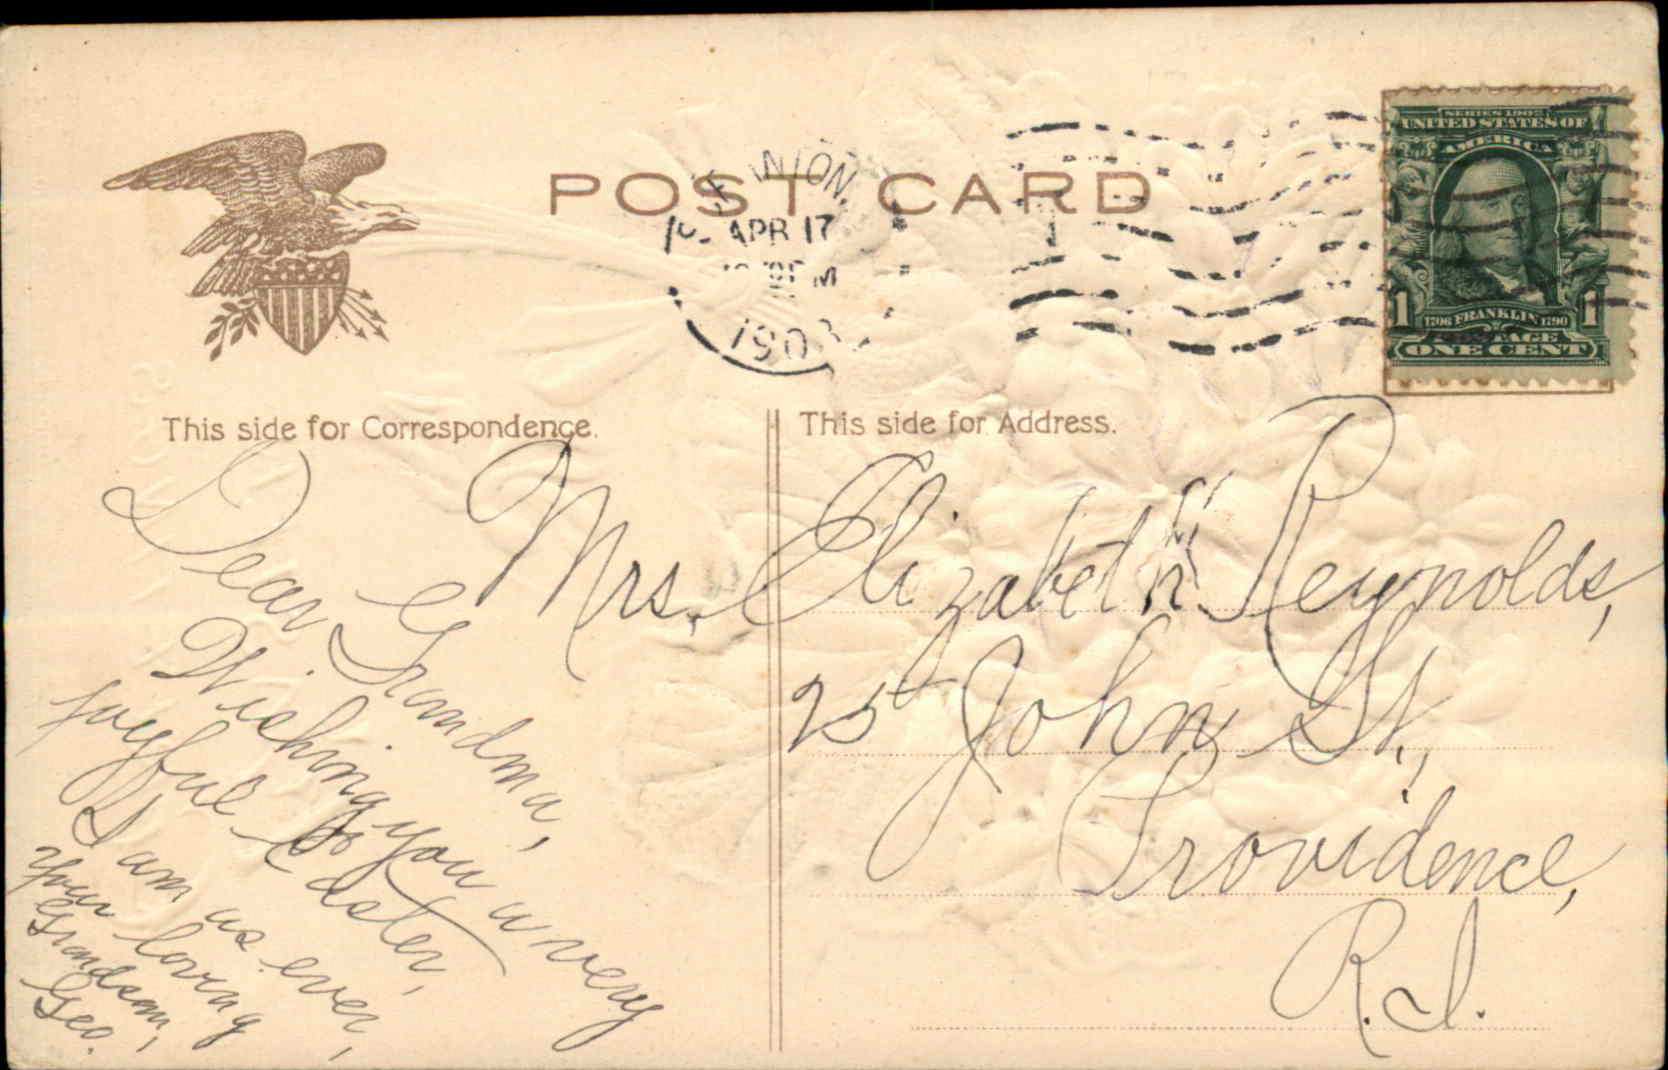 POST CARD
APR 17
1908
SERIES 1902
UNITED STATES OF
AMERICA
1 1
1706 FRANKLIN 1790
POSTAGE
ONE CENT
This side for Correspondence.
This side for Address.
Dear Grandma,
Wishing you a very
joyful Easter,
I am as ever,
Your loving
Grandson,
Geo.
Mrs. Elizabeth Reynolds,
25 John St.,
Providence,
R.I.